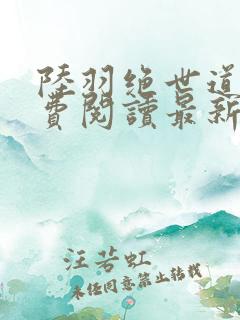 陸羽绝世道
费閱讀最新
汪芳虹
未经同意禁止转载